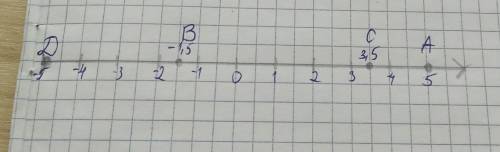 D B C A
-1,5 3,5
-5 -4 -3 -2 -1 0 1 2 3 4 5